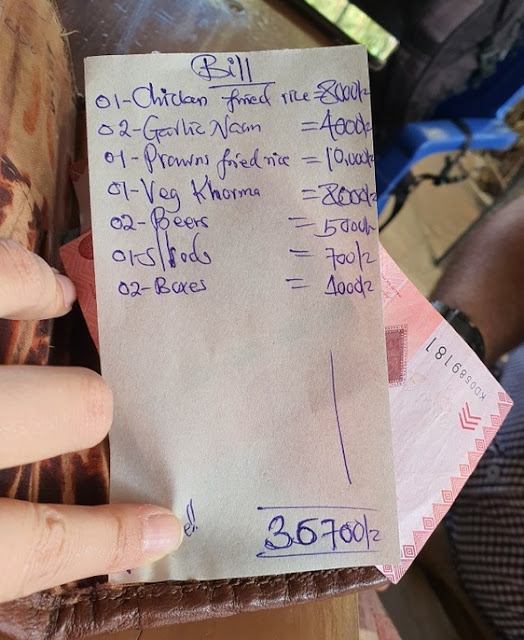 Bill
01-Chicken fried rice = 8000/=
02-Garlic Naan = 4000/=
01-Prawns fried rice = 10,000/=
01-Veg Khorma = 8000/=
02-Beers = 5000/=
01- = 700/=
02-Boxes = 1000/=
36700/=
KD0589181